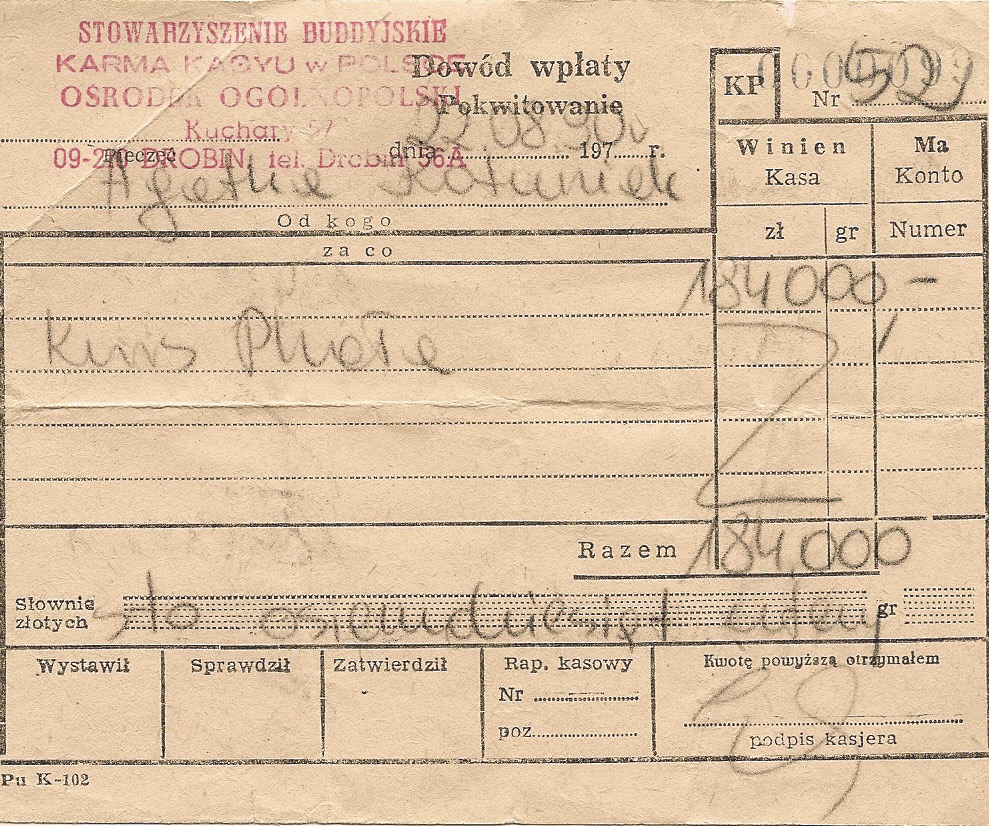 STOWARZYSZENIE BUDDYJSKIE
KARMA KAGYU w POLSCE
OŚRODEK OGÓLNOPOLSKI
Kuchary 57
09-210 DROBIN, tel. Drobin 56A
Dowód wpłaty
Pokwitowanie
KP
Nr 529
Pieczęć
dnia 22.08.90r 197 r.
Agatha
Od kogo
Winien
Kasa
Ma
Konto
zł gr Numer
za co
184000 -
Kurs Phoła
Razem 184,000
Słownie
złotych sto osiemdziesiąt cztery gr
Wystawił Sprawdził Zatwierdził Rap. kasowy Kwotę powyższą otrzymałem
Nr
poz.
podpis kasjera
Pu K-102